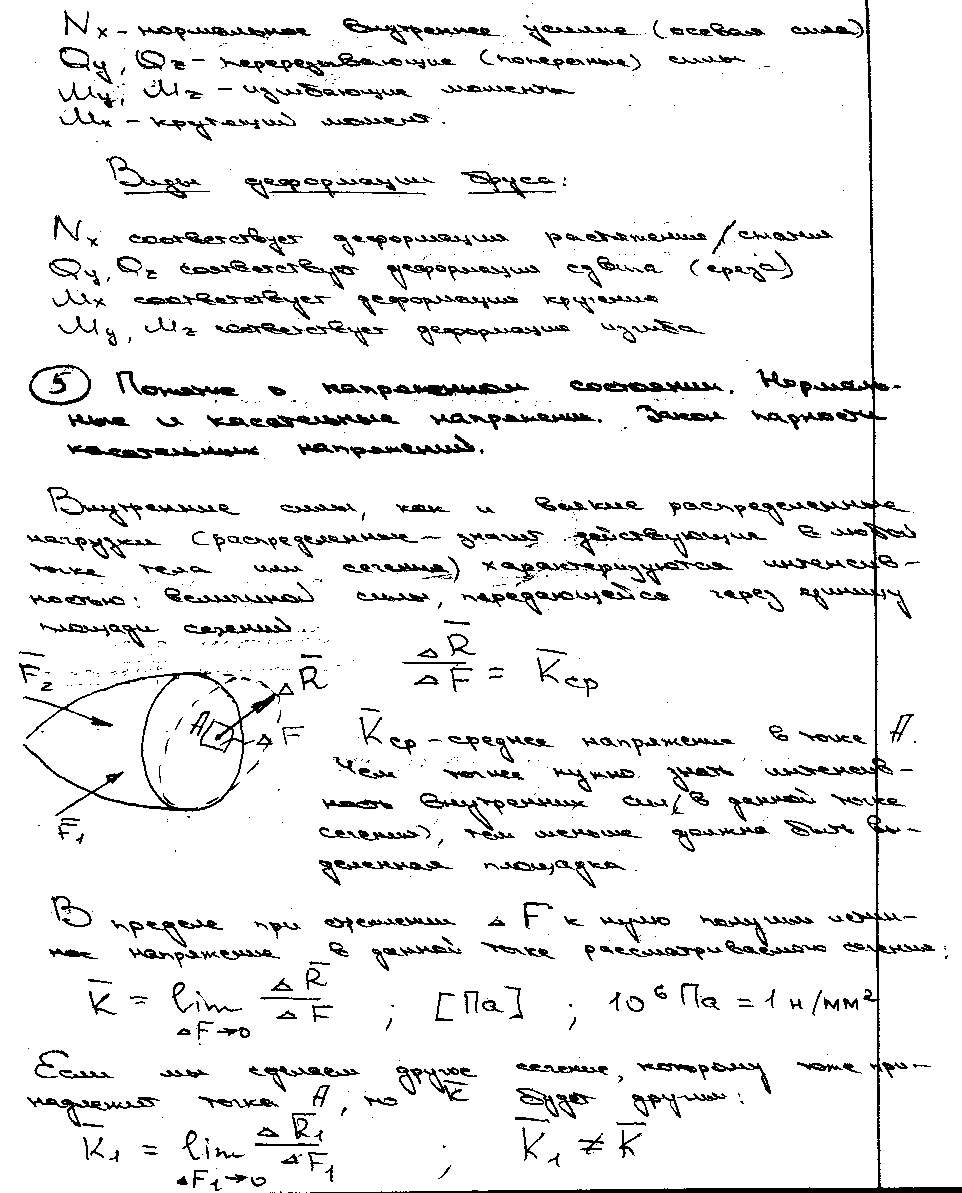 Nx - нормальное внутреннее усилие (осевая сила)
Qy, Qz - перерезывающие (поперечные) силы
My, Mz - изгибающие моменты
Mx - крутящий момент.
Виды деформации бруса:
Nx соответствует деформация растяжение/сжатия
Qy, Qz соответствует деформация сдвига (среза)
Mx соответствует деформация кручение
My, Mz соответствует деформация изгиба
5 Понятие о напряженном состоянии. Нормаль-
ные и касательные напряжения. Закон парности
касательных напряжений.
Внутренние силы, как и всякие распределенные
нагрузки (распределенные - значит действующие в любой
точке тела или сечения) характеризуются интенсив-
ностью: величиной силы, передающейся через единицу
площади сечений.
F̅₂ ΔR̅ A ΔF F̅₁
ΔR̅/ΔF = K̅ср
K̅ср - среднее напряжение в точке A.
Чем точнее нужно знать интенсив-
ность внутренних сил (в данной точке
сечения), тем меньше должна быть вы-
деленная площадка.
В пределе при стремлении ΔF к нулю получим истин-
ное напряжение в данной точке рассматриваемого сечения:
K̅ = lim ΔF→0 ΔR̅/ΔF ; [Па] ; 10⁶ Па = 1 н/мм²
Если мы сделаем другое сечение, которому тоже при-
надлежит точка A, то K̅ будет другим:
K̅₁ = lim ΔF₁→0 ΔR̅₁/ΔF₁ ; K̅₁ ≠ K̅